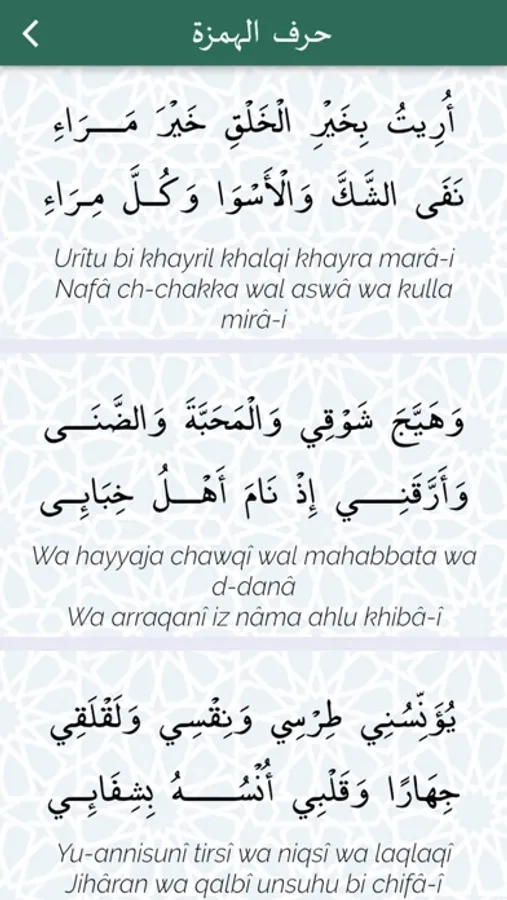 حرف الهمزة
أُرِيتُ بِخَيْرِ الْخَلْقِ خَيْرَ مَـــرَاءِ
نَفَى الشَّكَّ وَالْأَسْوَا وَكُـلَّ مِـرَاءِ
Urîtu bi khayril khalqi khayra marâ-i
Nafâ ch-chakka wal aswâ wa kulla
mirâ-i
وَهَيَّجَ شَوْقِي وَالْمَحَبَّةَ وَالضَّنَـــى
وَأَرَّقَنِــــي إِذْ نَامَ أَهْــلُ خِبَائِــى
Wa hayyaja chawqî wal mahabbata wa
d-danâ
Wa arraqanî iz nâma ahlu khibâ-î
يُؤَنِّسُنِي طِرْسِي وَنِقْسِي وَلَقْلَقِي
جِهَارًا وَقَلْبِي أُنْسُــــهُ بِشِفَائِــي
Yu-annisunî tirsî wa niqsî wa laqlaqî
Jihâran wa qalbî unsuhu bi chifâ-î